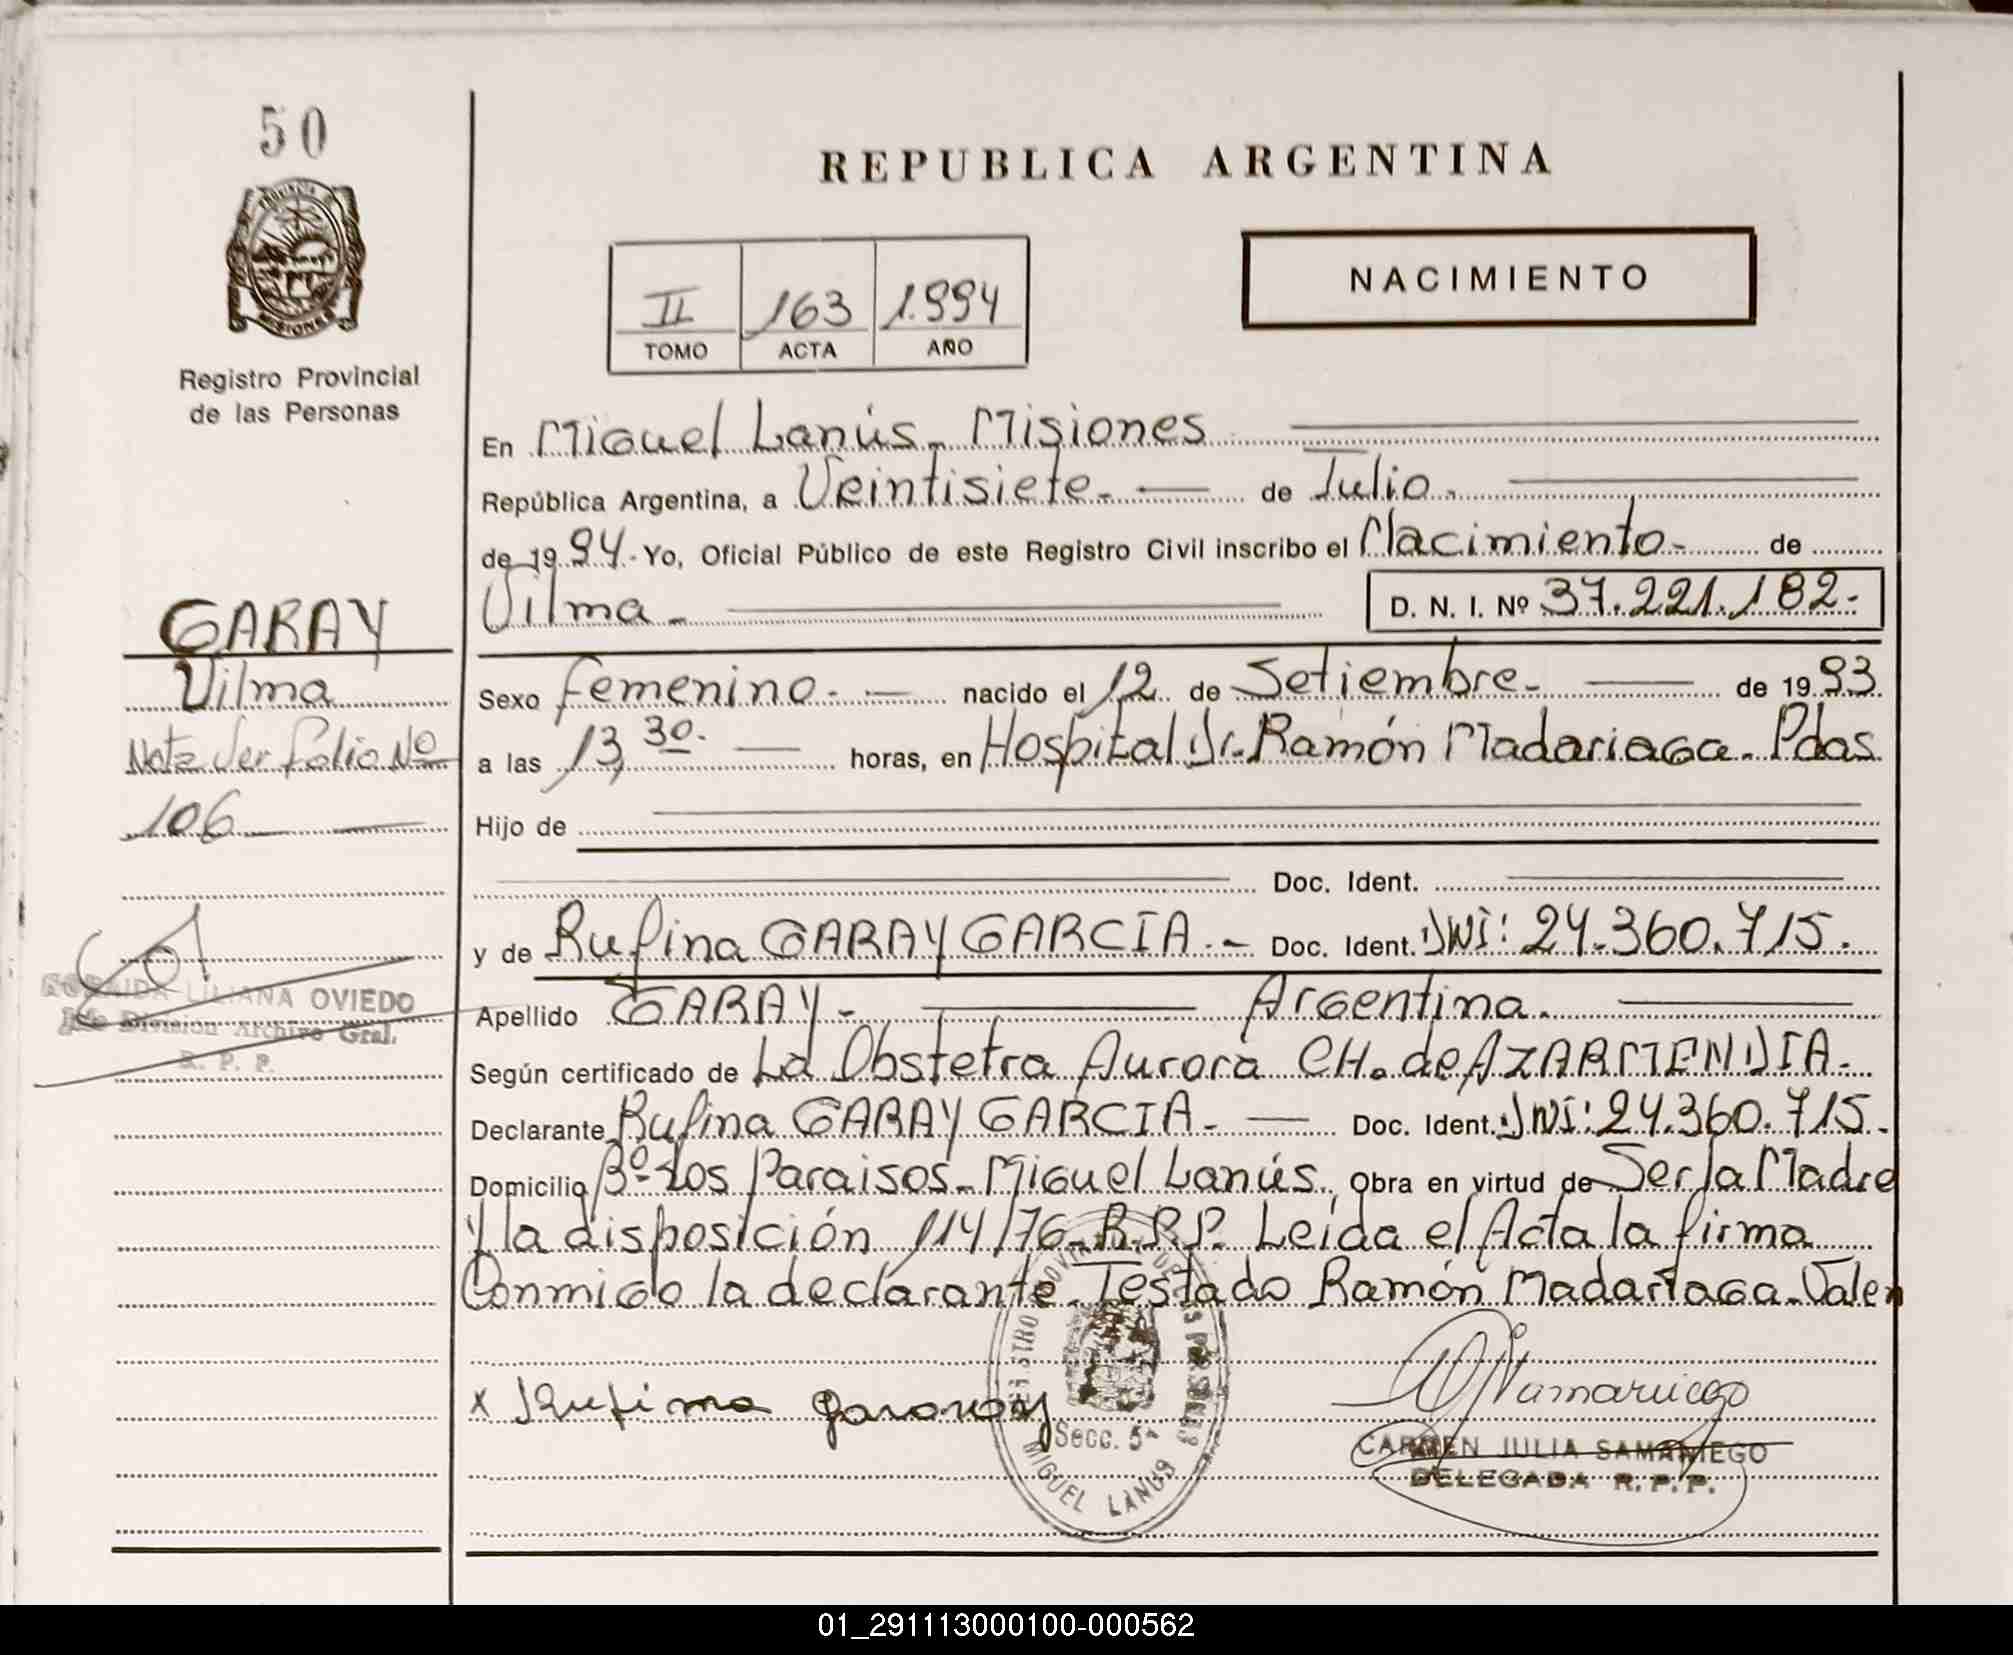 50
PROVINCIA
MISIONES
Registro Provincial
de las Personas
REPUBLICA ARGENTINA
NACIMIENTO
II 163 1.994
TOMO ACTA AÑO
En Miguel Lanús - Misiones
República Argentina, a Veintisiete. de Julio.
de 1994. Yo, Oficial Público de este Registro Civil inscribo el Nacimiento - de
Vilma - D. N. I. Nº 37.221.182.-
GARAY
Vilma
Nota Ver folio Nº
106
LILIANA OVIEDO
Jefe División Archivo Gral.
R. P. P.
Sexo femenino. nacido el 12 de Setiembre - de 1993
a las 13,30. horas, en Hospital Dr. Ramón Madariaga - Pdas
Hijo de
Doc. Ident.
y de Rufina GARAY GARCIA.- Doc. Ident. DNI: 24.360.715.
Apellido GARAY - Argentina.
Según certificado de La Obstetra Aurora CH. de AZARMENDIA.
Declarante Rufina GARAY GARCIA - Doc. Ident. DNI: 24.360.715.
Domicilio Bº Los Paraisos - Miguel Lanús. Obra en virtud de Ser la Madre
y la disposición 114/76 - R.P.P. Leída el Acta la firma
Conmigo la declarante. Testado Ramón Madariaga - Valen
x Rufima
Secc. 5ª
MIGUEL LANUS
CARMEN JULIA SAMANIEGO
DELEGADA R. P. P.
01_291113000100-000562